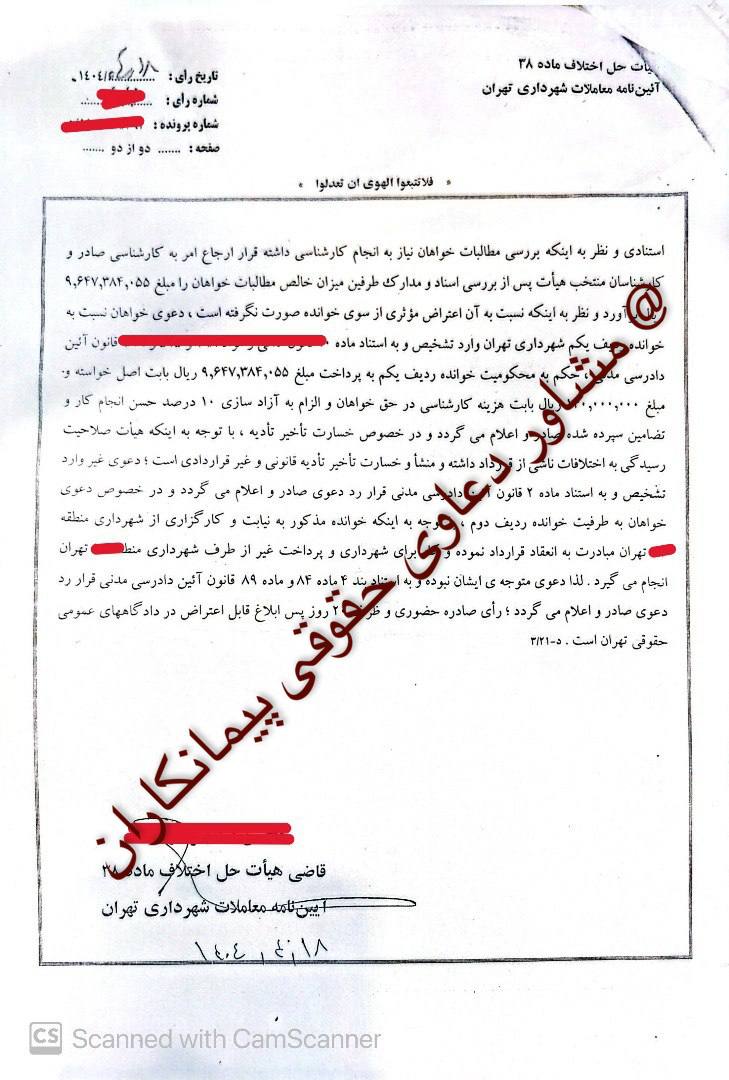 هیأت حل اختلاف ماده ۳۸
آئین‌نامه معاملات شهرداری تهران
تاریخ رأی : ۱۴۰۴/
شماره رأی :
شماره پرونده :
صفحه : ....... دو از دو .......
« فلاتتبعوا الهوی ان تعدلوا »
استنادی و نظر به اینکه بررسی مطالبات خواهان نیاز به انجام کارشناسی داشته قرار ارجاع امر به کارشناسی صادر و
کارشناسان منتخب هیأت پس از بررسی اسناد و مدارک طرفین میزان خالص مطالبات خواهان را مبلغ ۹,۶۴۷,۳۸۴,۰۵۵
برآورد و نظر به اینکه نسبت به آن اعتراض مؤثری از سوی خوانده صورت نگرفته است ، دعوی خواهان نسبت به
خوانده ردیف یکم شهرداری تهران وارد تشخیص و به استناد ماده قانون آئین
دادرسی مدنی ، حکم به محکومیت خوانده ردیف یکم به پرداخت مبلغ ۹,۶۴۷,۳۸۴,۰۵۵ ریال بابت اصل خواسته و
مبلغ ریال بابت هزینه کارشناسی در حق خواهان و الزام به آزاد سازی ۱۰ درصد حسن انجام کار و
تضامین سپرده شده صادر و اعلام می گردد و در خصوص خسارت تأخیر تأدیه ، با توجه به اینکه هیأت صلاحیت
رسیدگی به اختلافات ناشی از قرارداد داشته و منشأ و خسارت تأخیر تأدیه قانونی و غیر قراردادی است ؛ دعوی غیر وارد
تشخیص و به استناد ماده ۲ قانون آئین دادرسی مدنی قرار رد دعوی صادر و اعلام می گردد و در خصوص دعوی
خواهان به طرفیت خوانده ردیف دوم ، با توجه به اینکه خوانده مذکور به نیابت و کارگزاری از شهرداری منطقه
تهران مبادرت به انعقاد قرارداد نموده و برای شهرداری و پرداخت غیر از طرف شهرداری تهران
انجام می گیرد . لذا دعوی متوجه ی ایشان نبوده و به استناد بند ۴ ماده ۸۴ و ماده ۸۹ قانون آئین دادرسی مدنی قرار رد
دعوی صادر و اعلام می گردد ؛ رأی صادره حضوری و ظرف روز پس ابلاغ قابل اعتراض در دادگاههای عمومی
حقوقی تهران است . د-۳/۲۱
@مشاور دعاوی حقوقی پیمانکاران
قاضی هیأت حل اختلاف ماده ۳۸
آیین‌نامه معاملات شهرداری تهران
CS Scanned with CamScanner